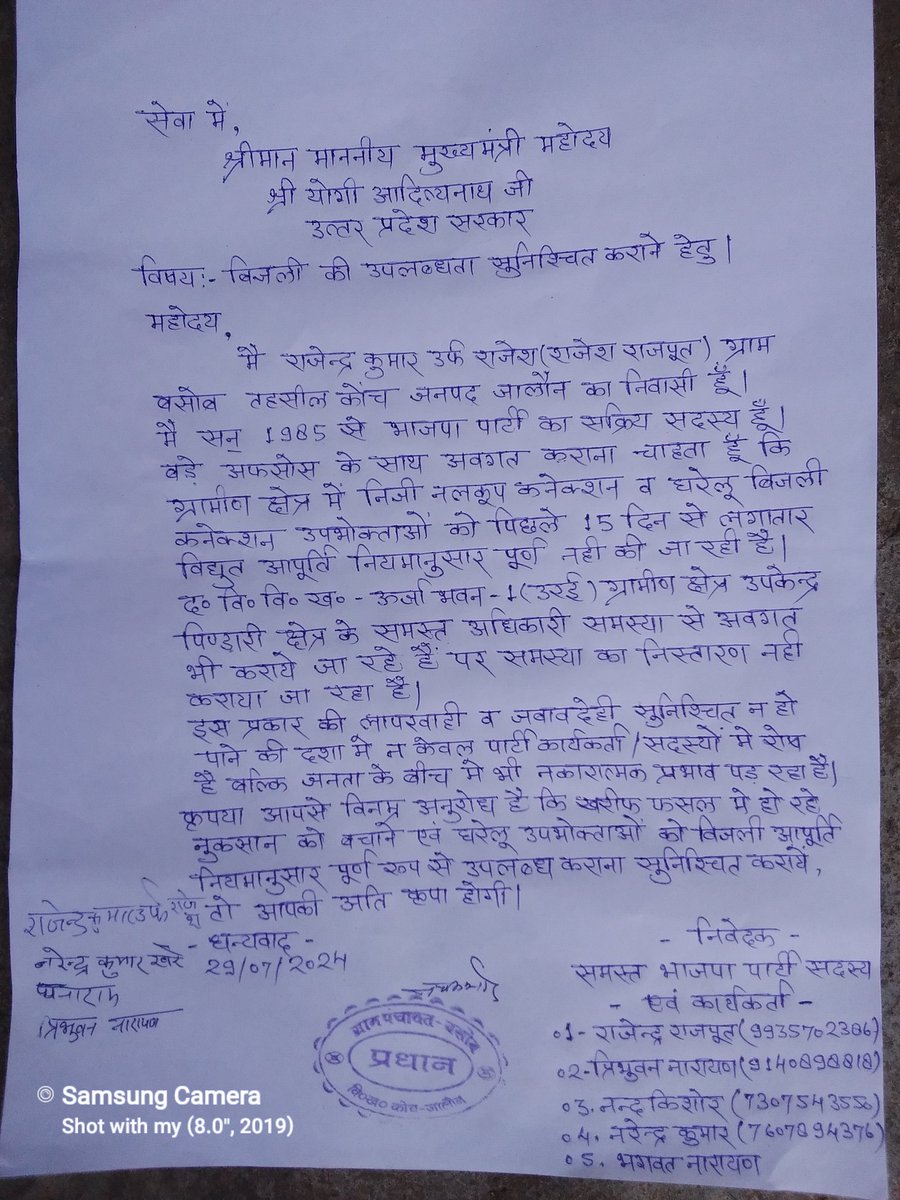 सेवा में,
श्रीमान माननीय मुख्यमंत्री महोदय
श्री योगी आदित्यनाथ जी
उत्तर प्रदेश सरकार
विषय:- बिजली की उपलब्धता सुनिश्चित कराने हेतु।
महोदय,
मै राजेन्द्र कुमार उर्फ राजेश(राजेश राजपूत) ग्राम
बसोब तहसील कोंच जनपद जालौन का निवासी हूँ।
मै सन् 1985 से भाजपा पार्टी का सक्रिय सदस्य हूँ।
बड़े अफसोस के साथ अवगत कराना चाहता हूँ कि
ग्रामीण क्षेत्र में निजी नलकूप कनेक्शन व घरेलू बिजली
कनेक्शन उपभोक्ताओं को पिछले 15 दिन से लगातार
विद्युत आपूर्ति नियमानुसार पूर्ण नही की जा रही है।
द० वि० वि० ख० - ऊर्जा भवन-1(उरई) ग्रामीण क्षेत्र उपकेन्द्र
पिण्डारी क्षेत्र के समस्त अधिकारी समस्या से अवगत
भी कराये जा रहे हैं पर समस्या का निस्तारण नही
कराया जा रहा है।
इस प्रकार की लापरवाही व जवाबदेही सुनिश्चित न हो
पाने की दशा मे न केवल पार्टी कार्यकर्ता/सदस्यों मे रोष
है बल्कि जनता के बीच मे भी नकारात्मक प्रभाव पड़ रहा है।
कृपया आपसे विनम्र अनुरोध है कि खरीफ फसल मे हो रहे
नुकसान को बचाने एवं घरेलू उपभोक्ताओं को बिजली आपूर्ति
नियमानुसार पूर्ण रूप से उपलब्ध कराना सुनिश्चित करायें,
तो आपकी अति कृपा होगी।
- धन्यवाद -
29/07/2024
राजेन्द्र कुमार(उर्फ) राजेश
नरेन्द्र कुमार खरे
त्रिभुवन नारायण
- निवेदक -
समस्त भाजपा पार्टी सदस्य
- एवं कार्यकर्ता -
01- राजेन्द्र राजपूत(9935702386)
02-त्रिभुवन नारायण(9140898818)
03. नन्द किशोर (7307543556)
04. नरेन्द्र कुमार (7607894376)
05. भगवत नारायण
ग्राम पंचायत-बसोब
प्रधान
वि०ख० कोंच-जालौन
© Samsung Camera
Shot with my (8.0", 2019)